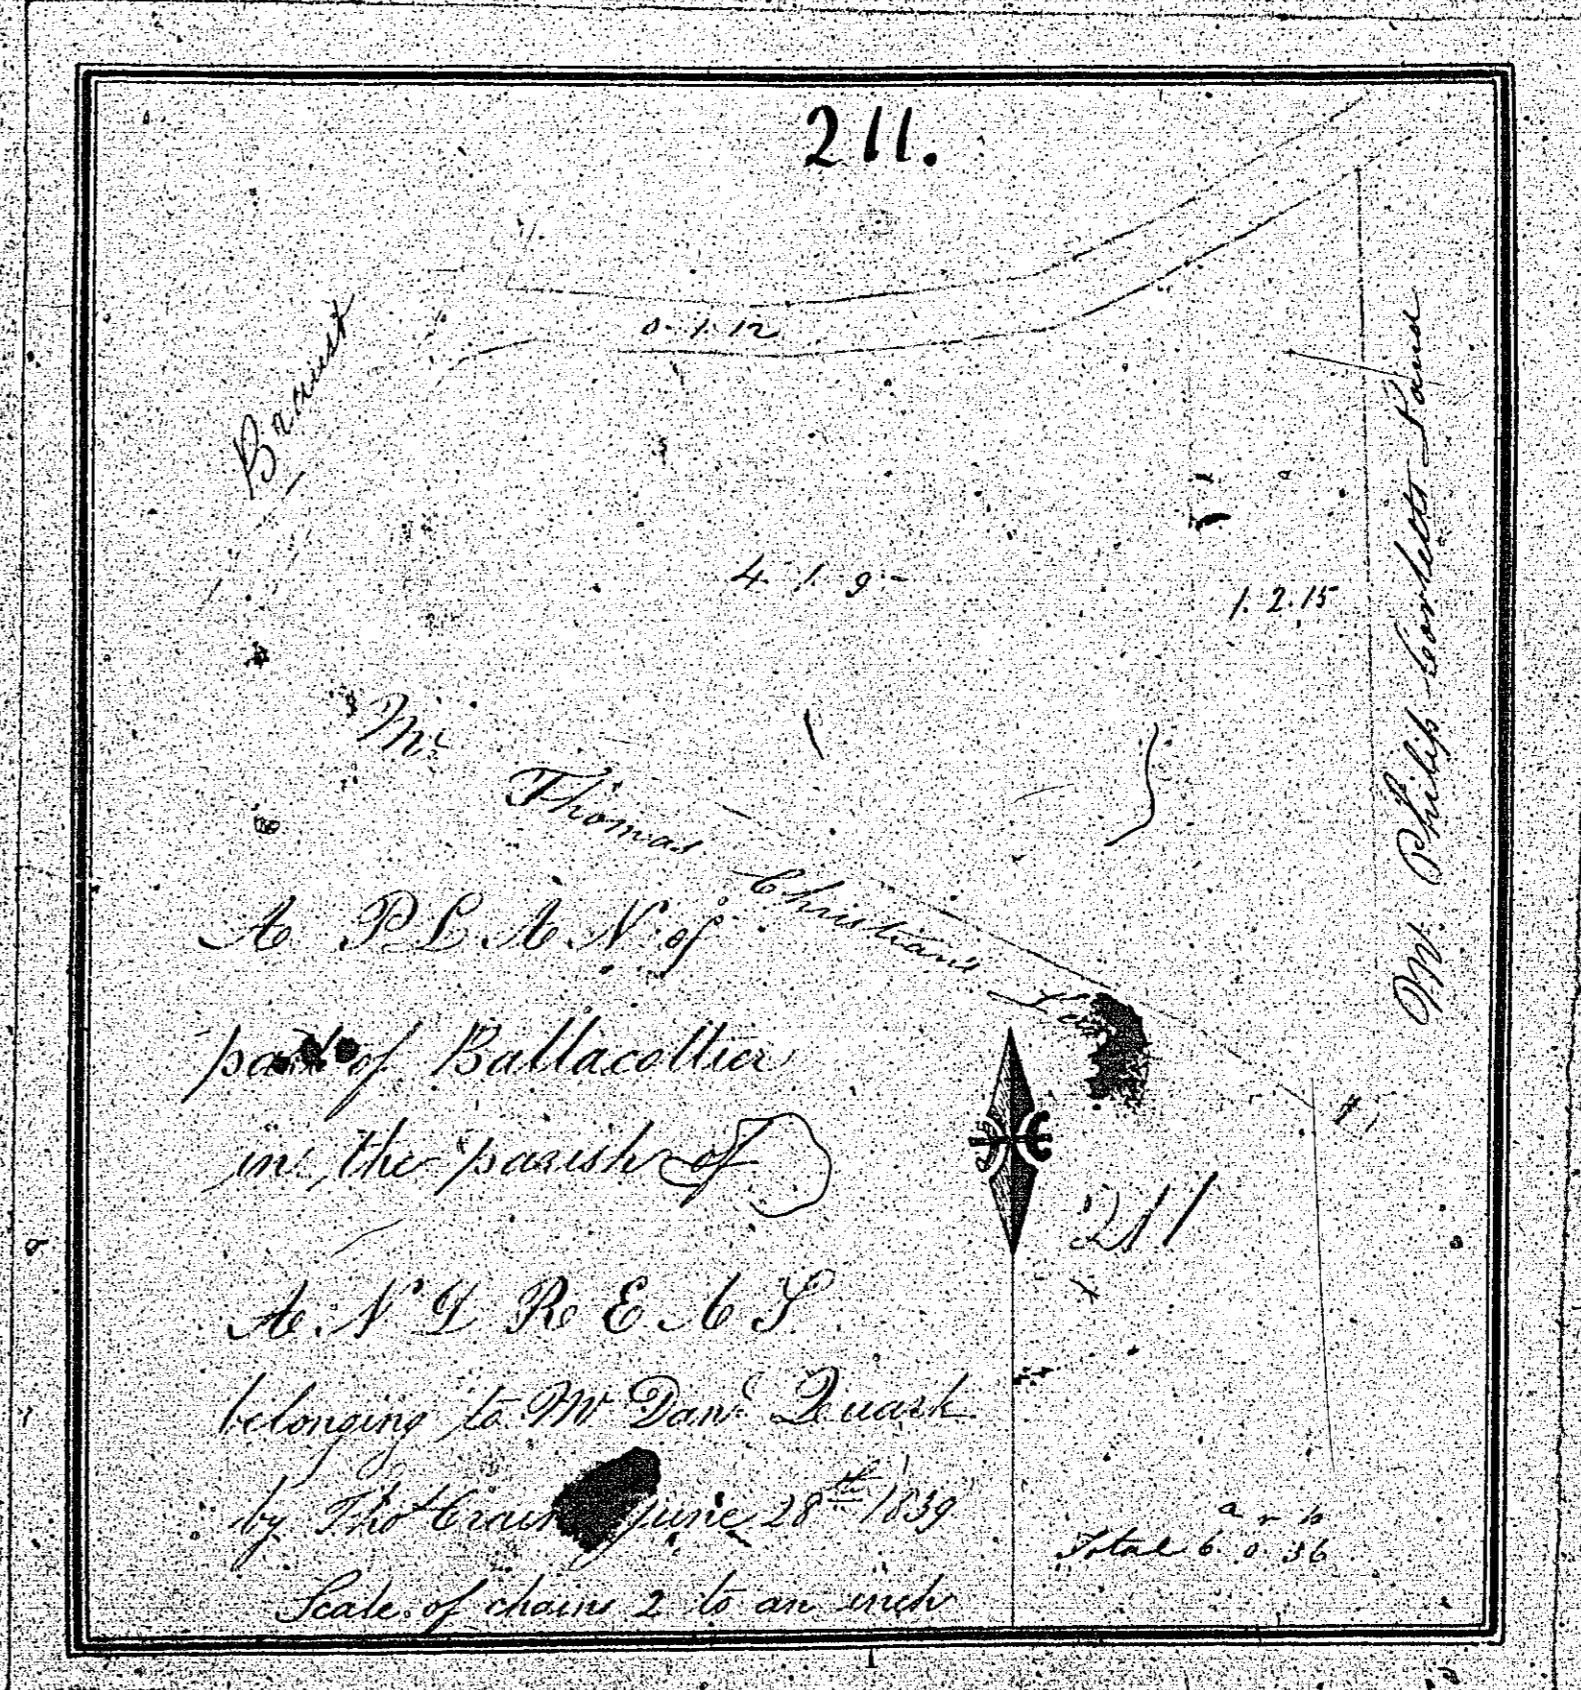 211.
0. 1. 12
Braust
4. 1. 9
1. 2. 15
Mr. Philip Corletts Land
Mr. Thomas Christians
A PLAN of
part of Ballacottier
in the parish of
ANDREAS
belonging to Mr Danl. Quark
by Thos Crain June 28th 1839
Scale of chains 2 to an inch
211
a r p
Total 6 0 36